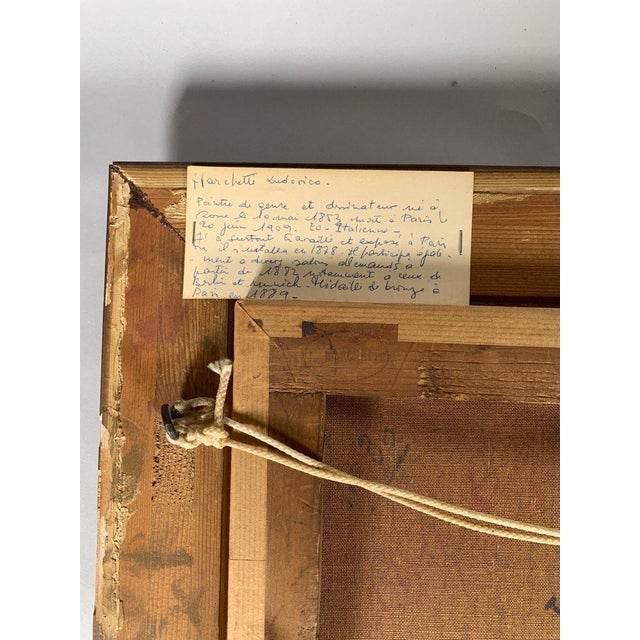 Marchetti Ludovico.
Peintre de genre et dessinateur né à
Rome le 10 mai 1853 mort à Paris le
20 juin 1909. Ec. Italienne.
Il a surtout travaillé et exposé à Paris
où il s'installa en 1878. Il participa égale
ment a divers salons allemands à
partir de 1883 notamment a ceux de
Berlin et Munich. Médaille de bronze à
Paris en 1889.